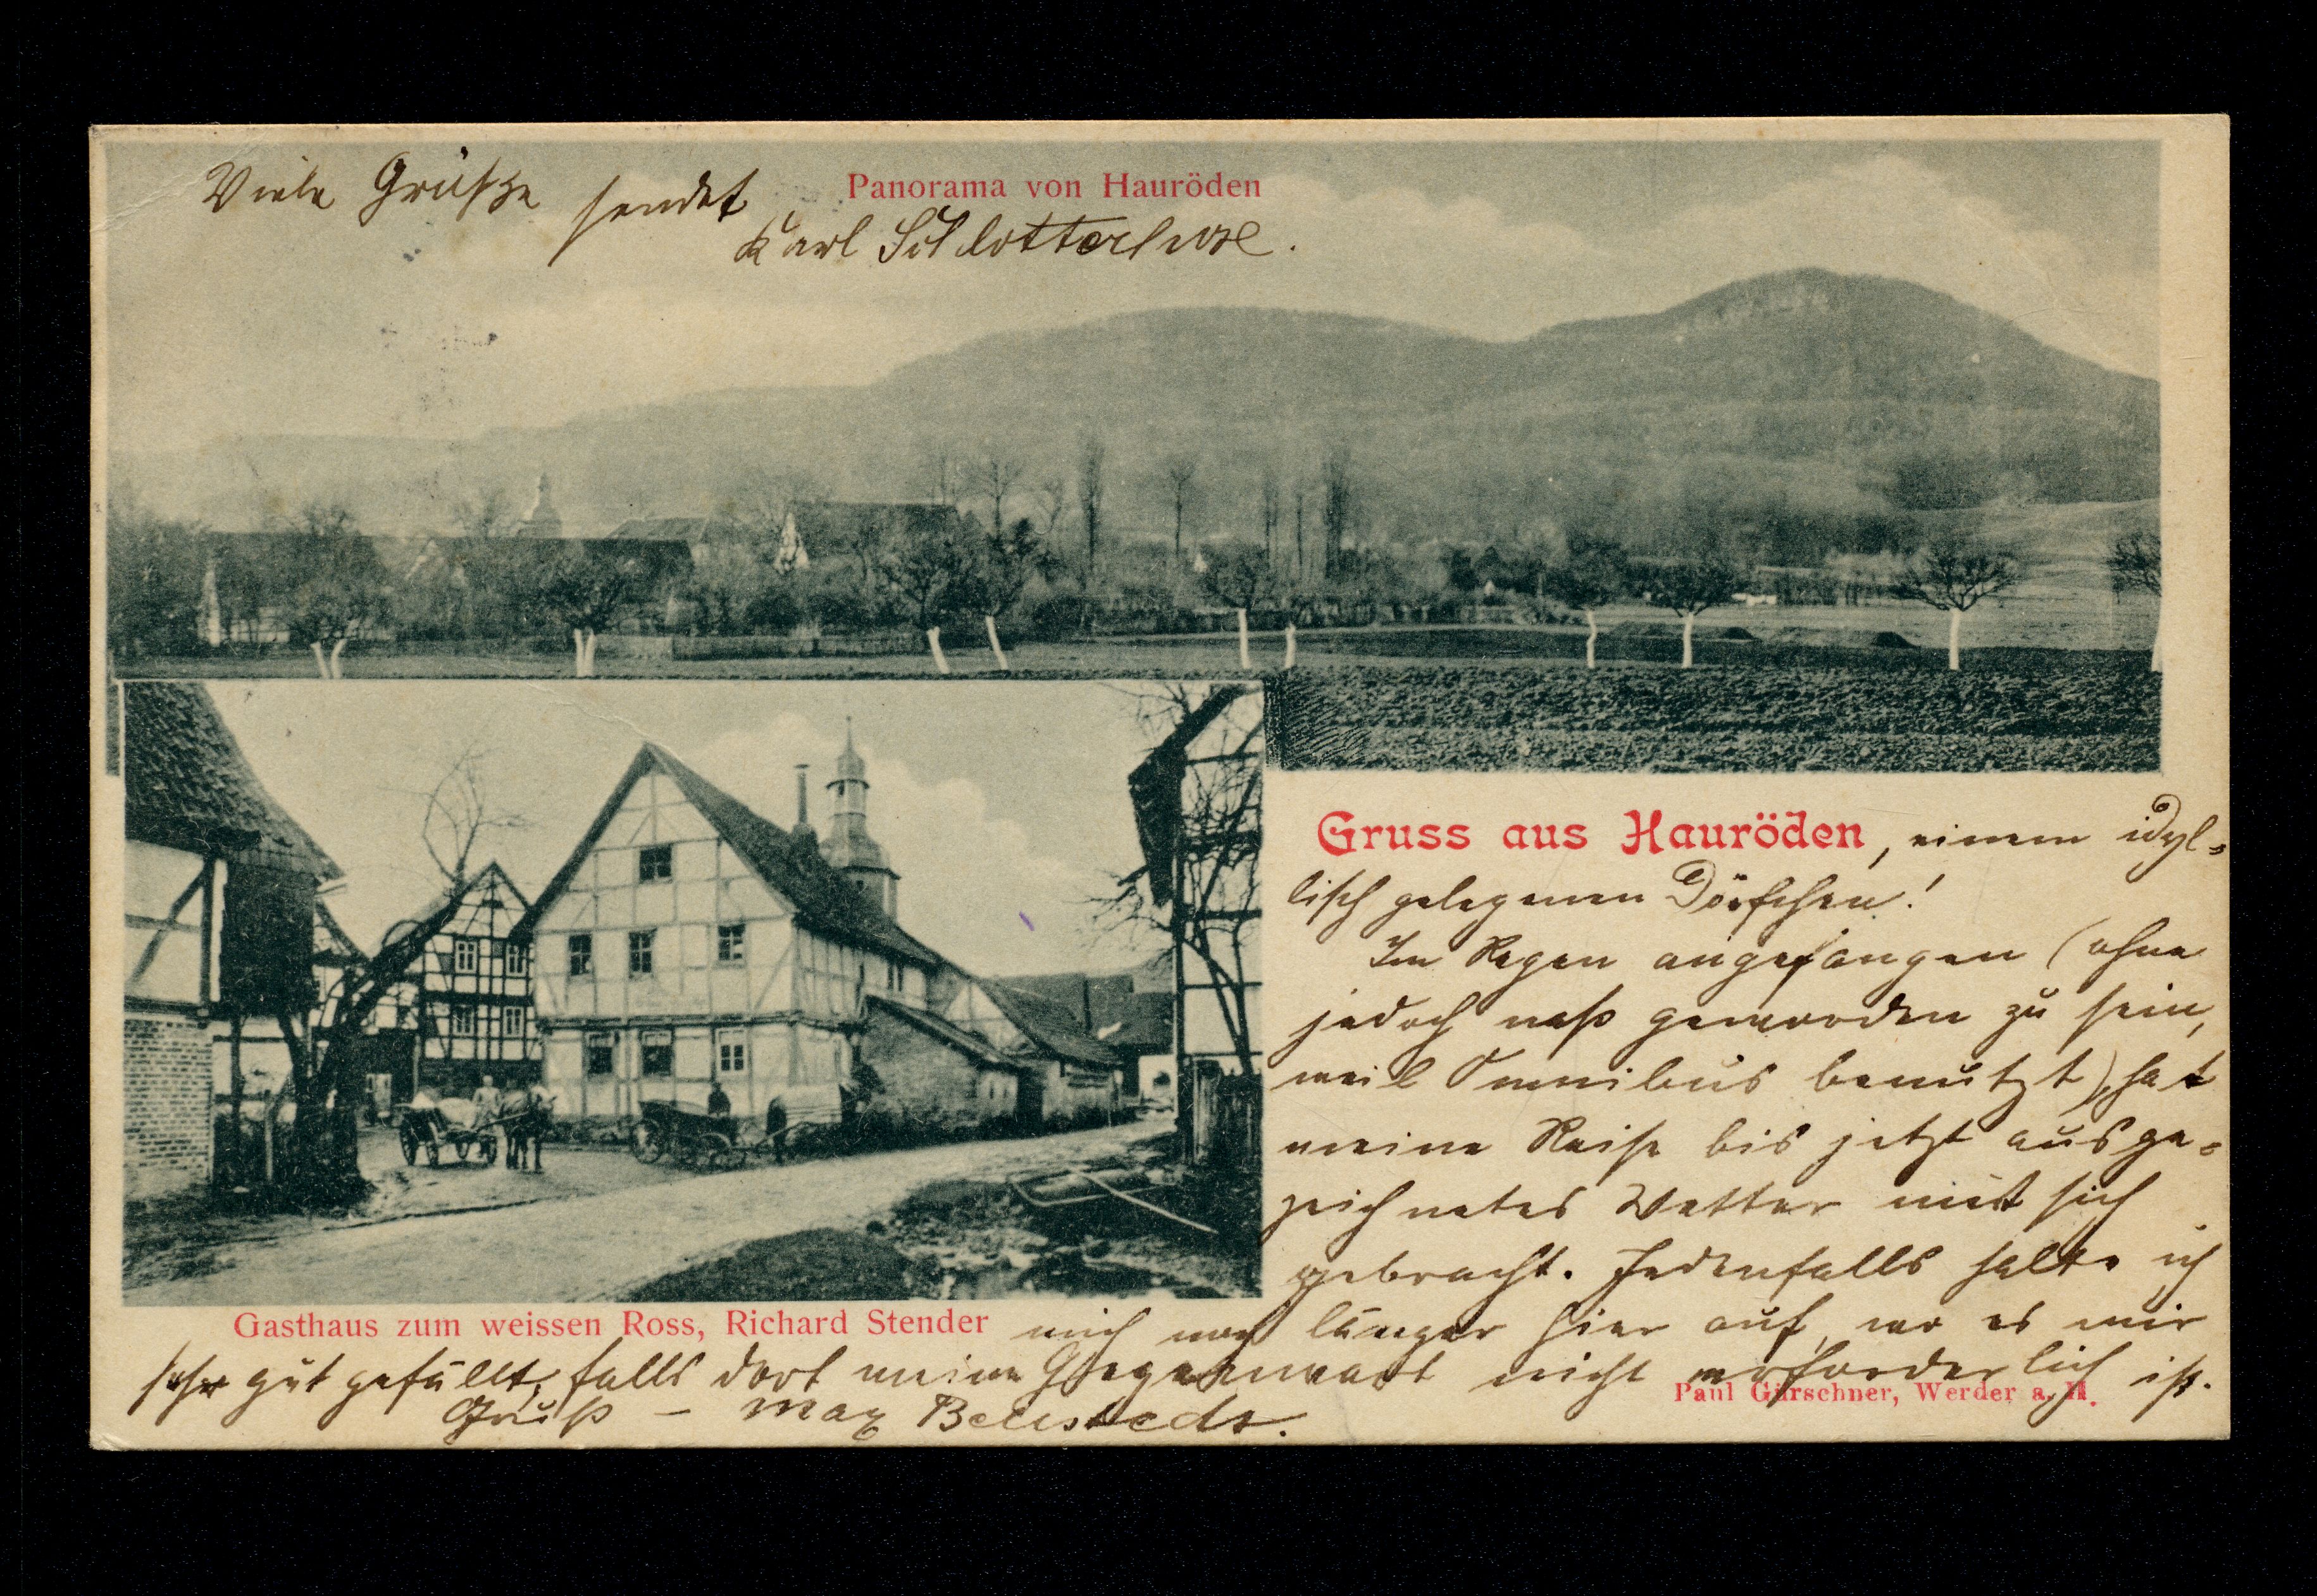 Viele Grüße sendet
Panorama von Hauröden
Karl
Gruss aus Hauröden, einem idyl-
lisch gelegenen Dörfchen!
Im Regen angefangen (ohne
jedoch naß geworden zu sein,
weil Omnibus benutzt), hat
meine Reise bis jetzt ausge-
zeichnetes Wetter mit sich
gebracht. Jedenfalls halte ich
Gasthaus zum weissen Ross, Richard Stender
mich noch länger hier auf, wo es mir
sehr gut gefällt, falls dort meine Gegenwart nicht erforderlich ist.
Paul Gürschner, Werder a. H.
Gruß – Max